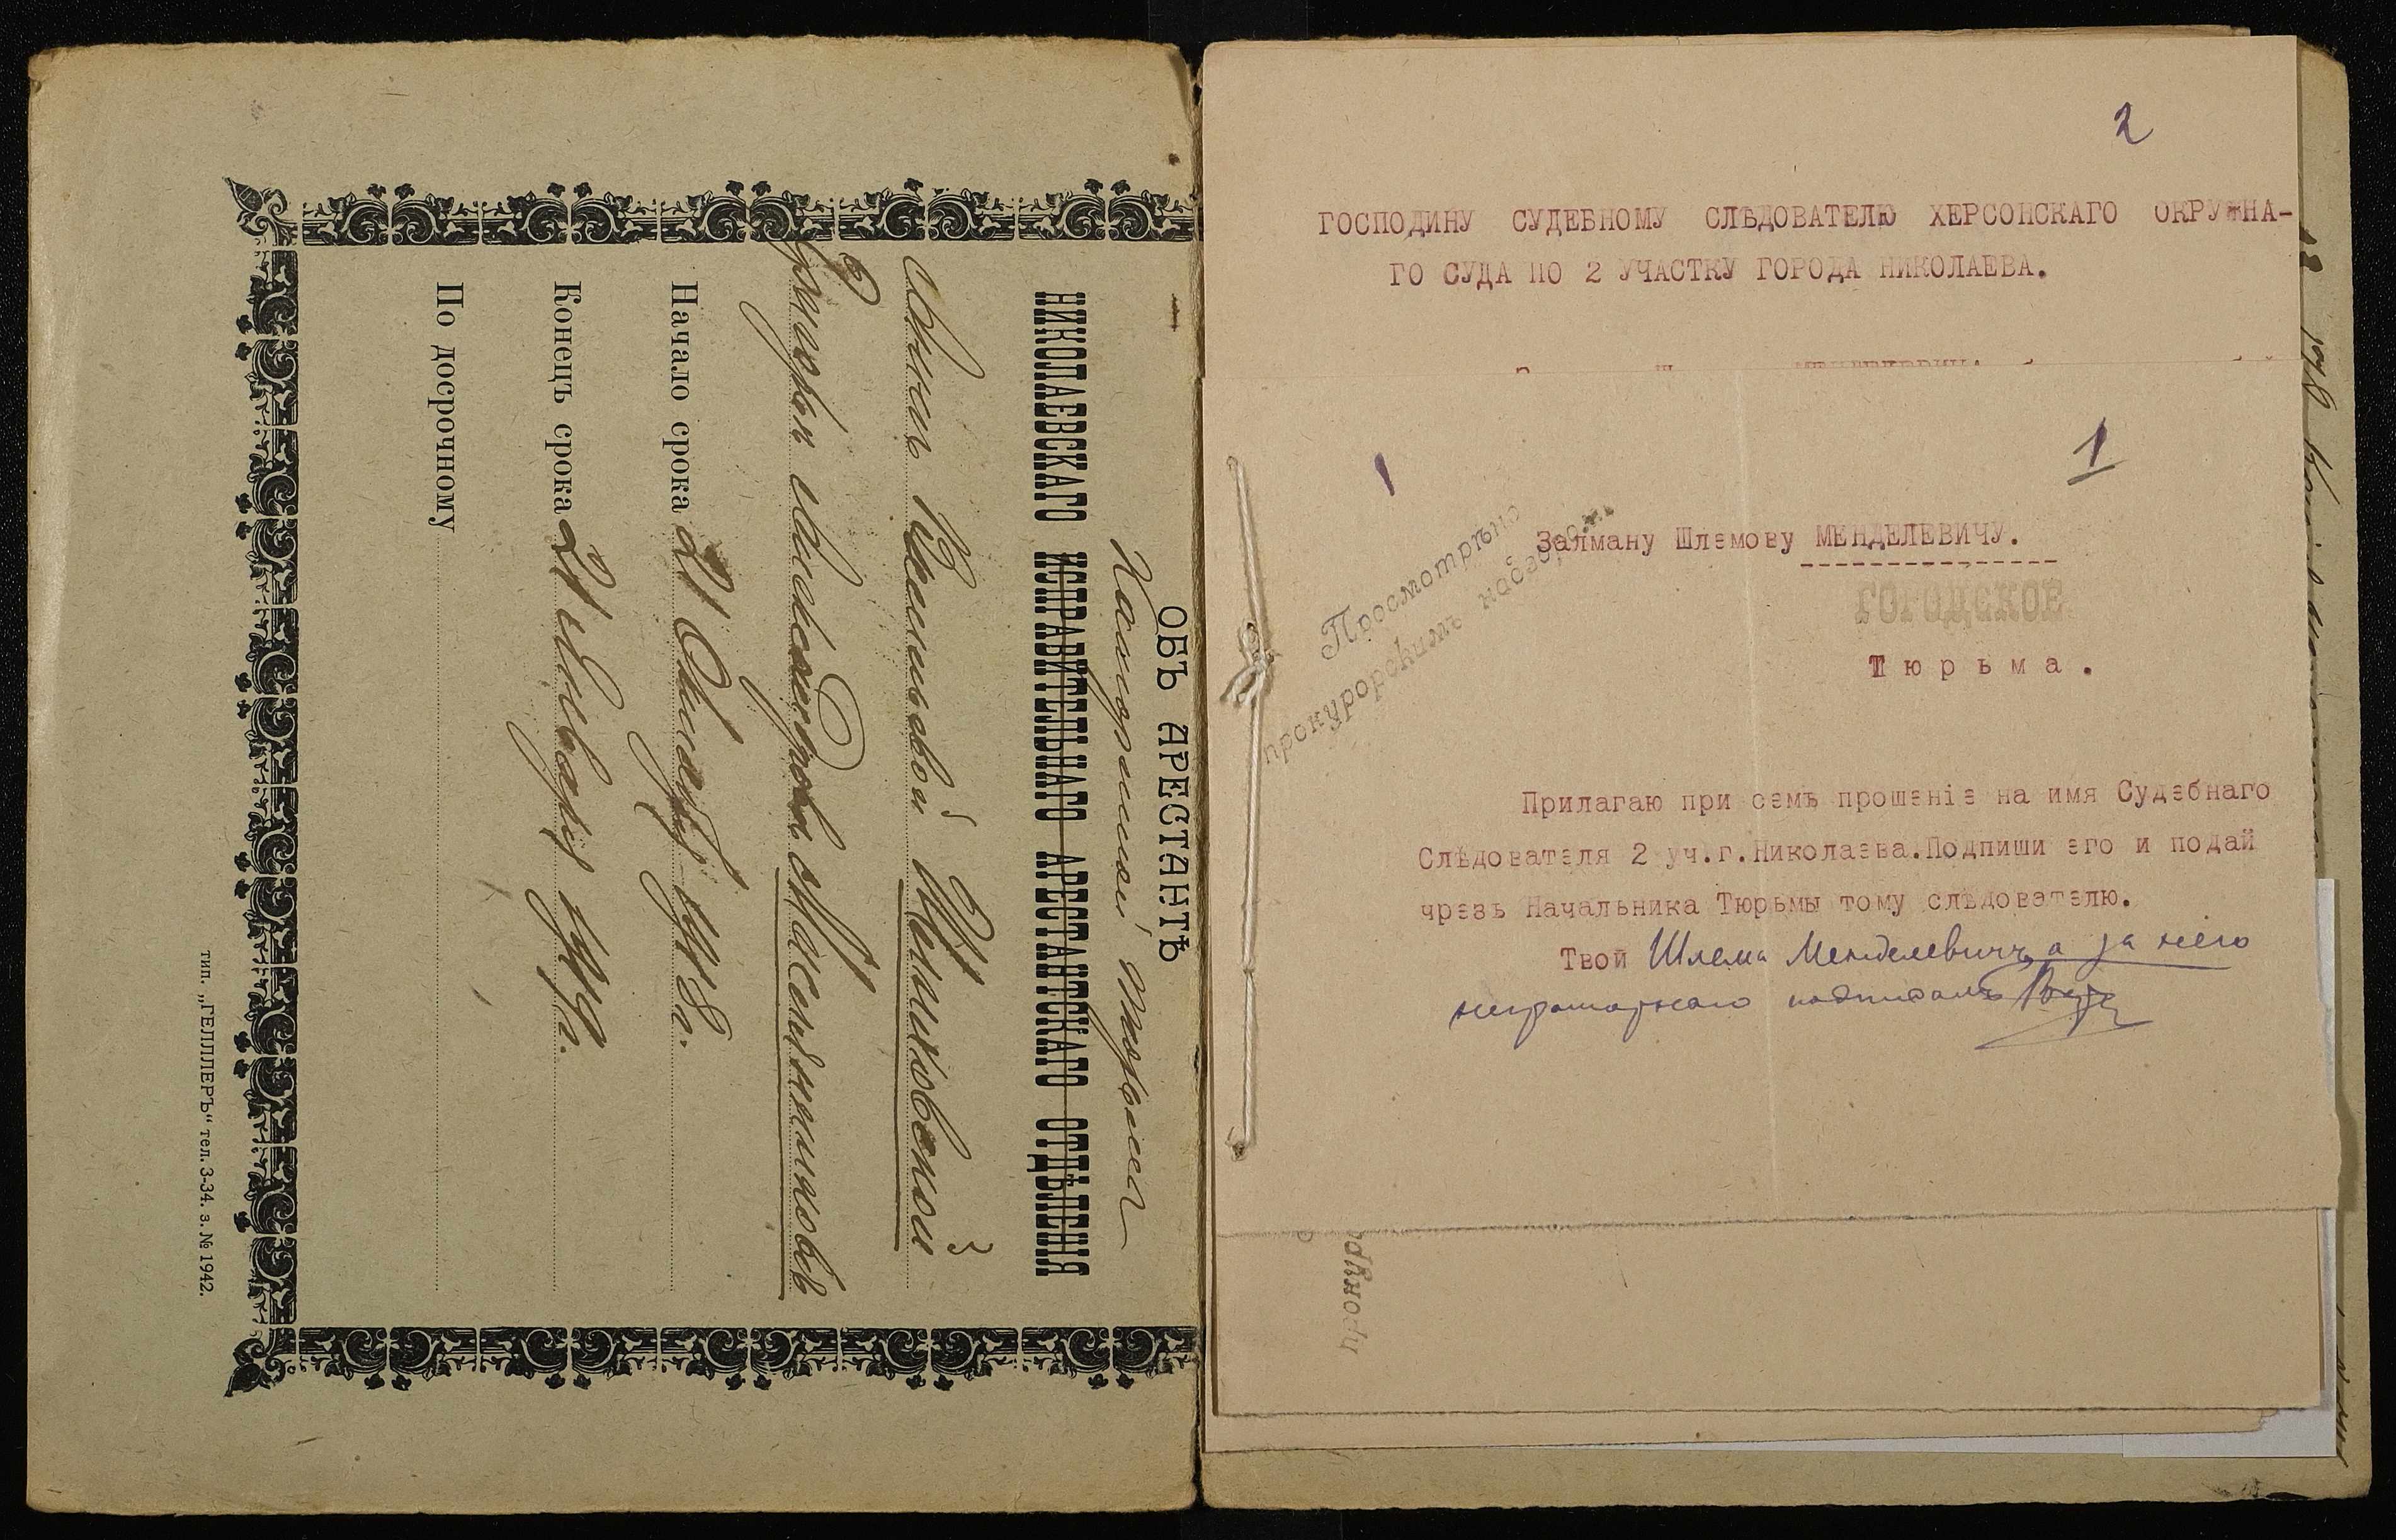 ОБЪ АРЕСТАНТѢ
Каторжной тюрьмы
НИКОЛАЕВСКАГО ИСПРАВИТЕЛЬНАГО АРЕСТАНТСКАГО ОТДѢЛЕНІЯ
Григорѣ Александровѣ Масленниковѣ
Начало срока 21 1918 г.
Конецъ срока 21 Января 1919 г.
По досрочному
тип. „ГЕЛЛЛЕРЪ“ тел. 3-34. з. № 1942.
2
ГОСПОДИНУ СУДЕБНОМУ СЛѢДОВАТЕЛЮ ХЕРСОНСКАГО ОКРУЖНА-
ГО СУДА ПО 2 УЧАСТКУ ГОРОДА НИКОЛАЕВА.
1
1
Залману Шлемову МЕНДЕЛЕВИЧУ.
ГОРОДСКОЕ
Тюрьма.
Просмотрѣно
прокурорскимъ надзоромъ
Прилагаю при семъ прошеніе на имя Судебнаго
Слѣдователя 2 уч.г.Николаева.Подпиши его и подай
чрезъ Начальника Тюрьмы тому слѣдователю.
Твой Шлема Менделевичъ, а за него
неграмотнаго подписалъ